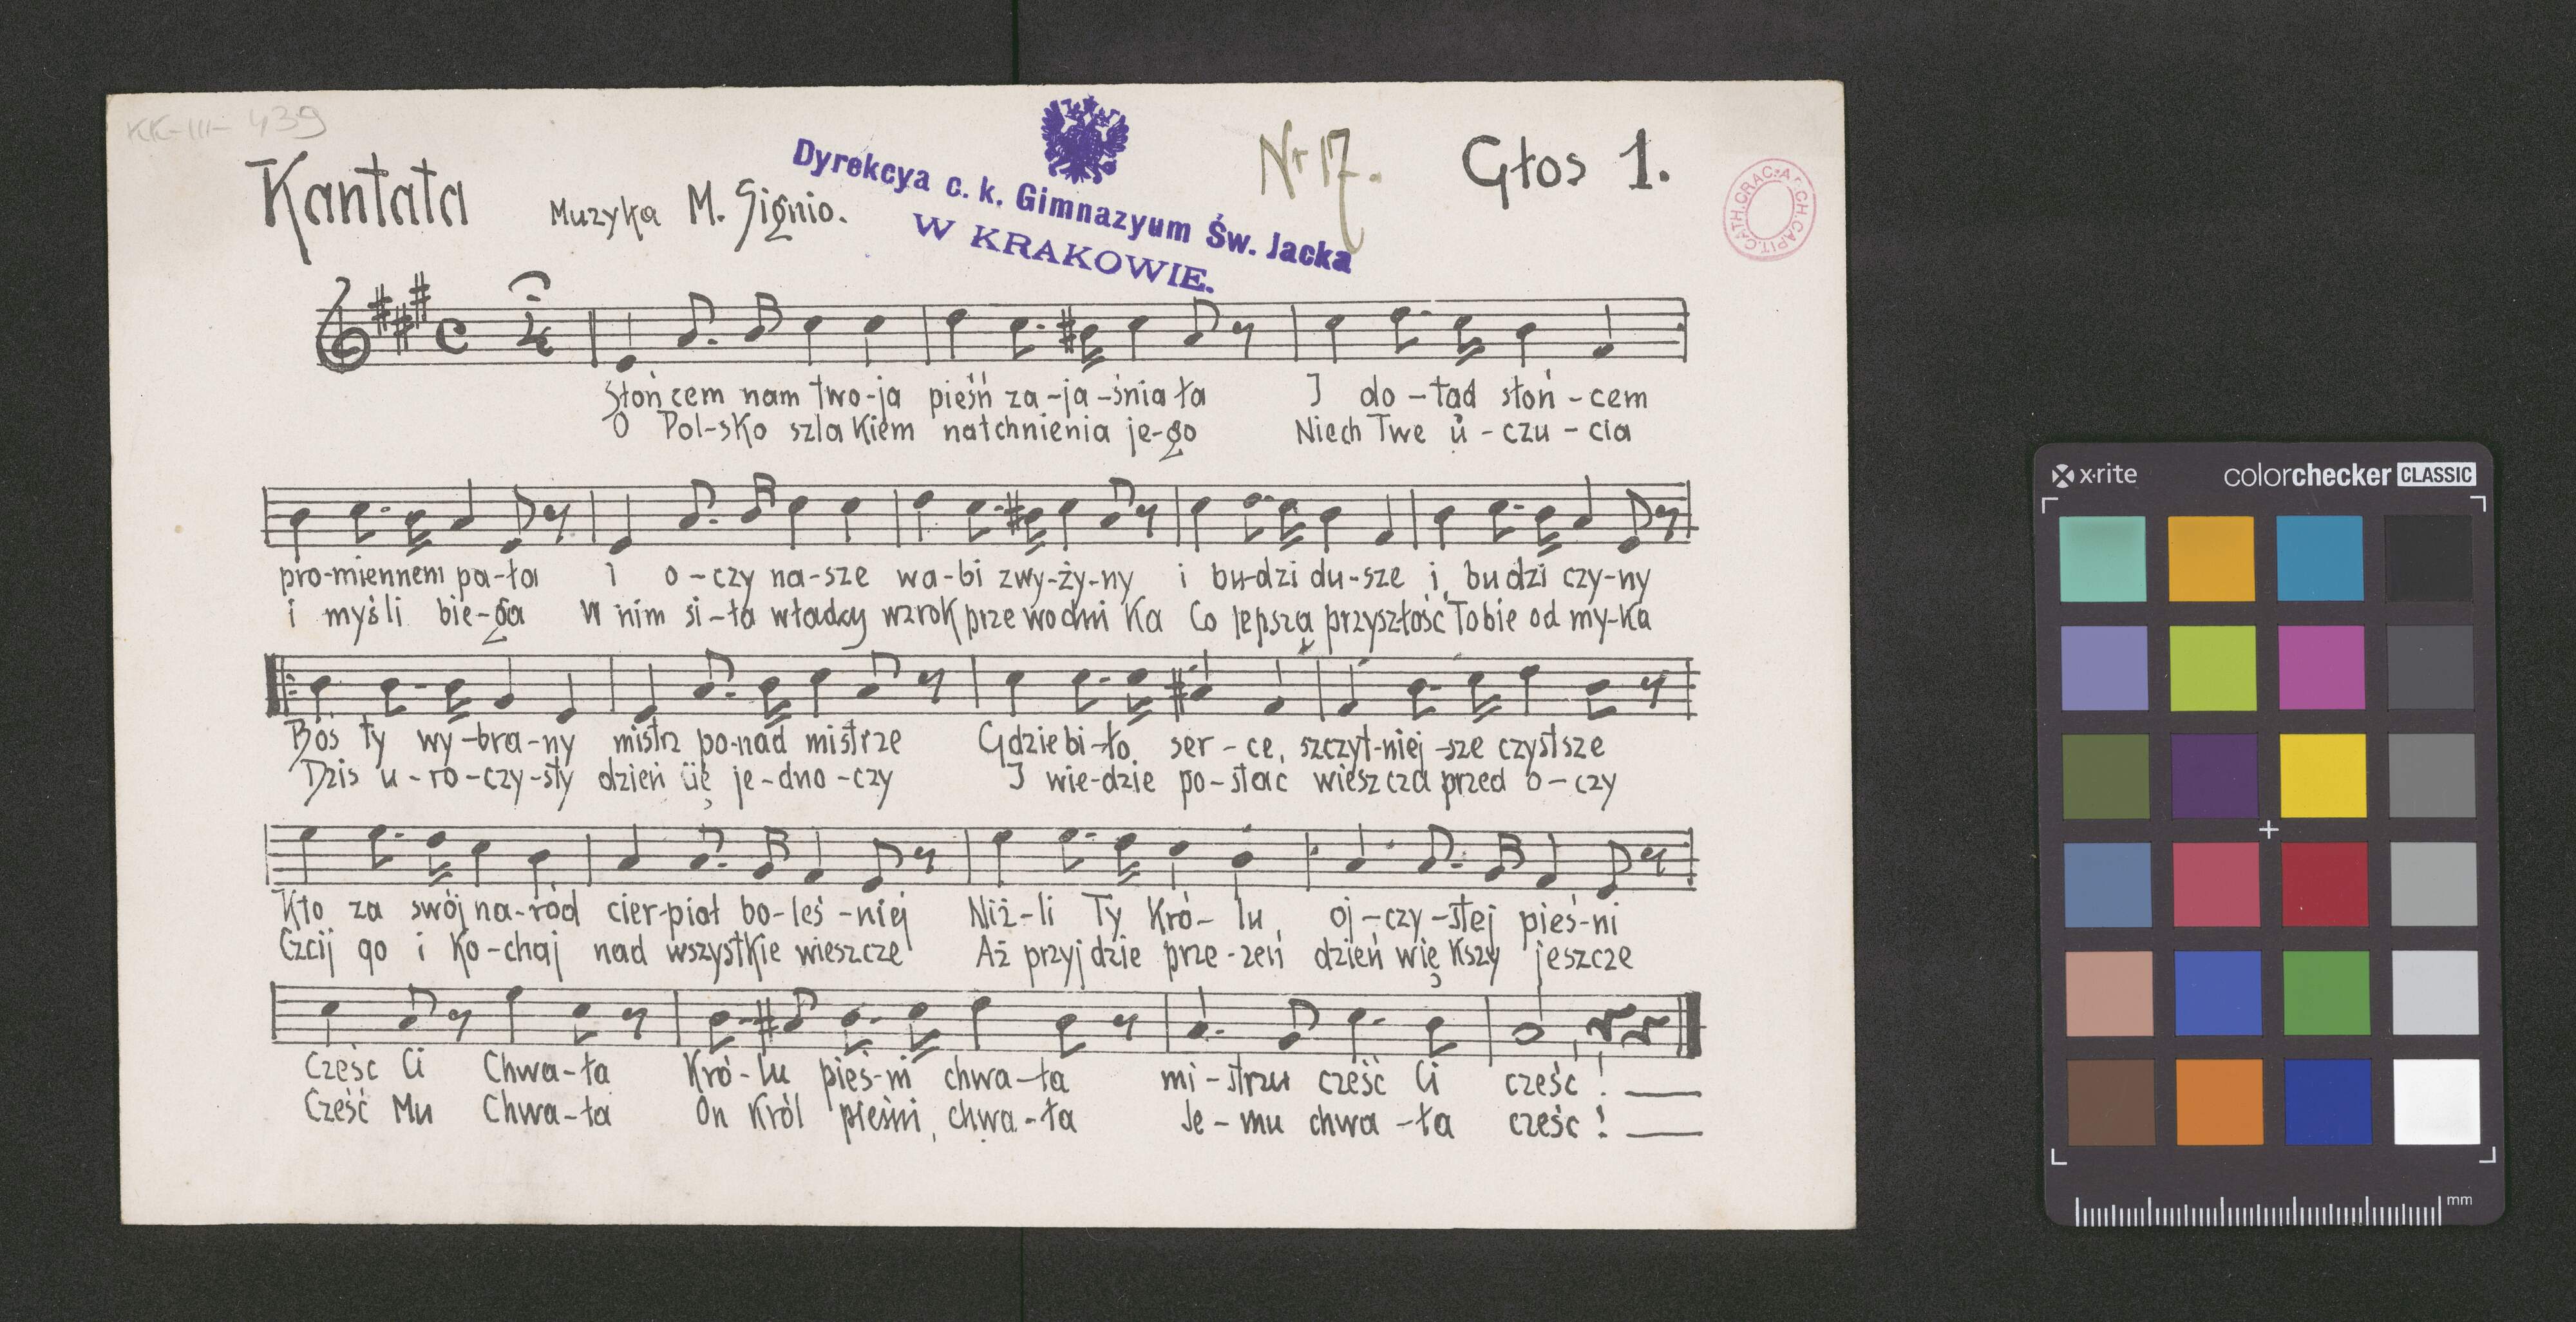 KK-III-439
Kantata
Muzyka M. Signio.
Dyrekcya c. k. Gimnazyum Św. Jacka
W KRAKOWIE.
Nr 17.
Głos 1.
CATH.CRAC.ARCH.CAPIT.
C 4
Słońcem nam two-ja pieśń za-ja-śnia ła I do-tad słoń-cem
O Pol-sko szlakiem natchnienia je-go Niech Twe u-czu-cia
pro-miennem pa-ła i o-czy na-sze wa-bi zwy-ży-ny i bu-dzi du-sze i budzi czy-ny
i myśli bie-gą W nim si-ła władzy wzrok prze wodni ka Co lepszą przyszłość Tobie od my-ka
Boś ty wy-bra-ny mistrz po-nad mistrze Gdzie bi-ło ser-ce, szczyt-niej-sze czystsze
Dzis u-ro-czy-sty dzień się je-dno-czy I wie-dzie po-stac wieszcza przed o-czy
Kto za swój na-ród cier-piał bo-leś-niej Niż-li Ty Kró-lu, oj-czy-stej pieś-ni
Czcij go i ko-chaj nad wszystkie wieszcze Aż przyjdzie prze-zeń dzień wię kszy jeszcze
Cześć Ci Chwa-ła Kró-lu pieś-ni chwa-ła mi-strzu cześć Ci cześć!
Cześć Mu Chwa-ła On Król pieśni, chwa-ła Je-mu chwa-ła cześć!
x-rite colorchecker CLASSIC
mm